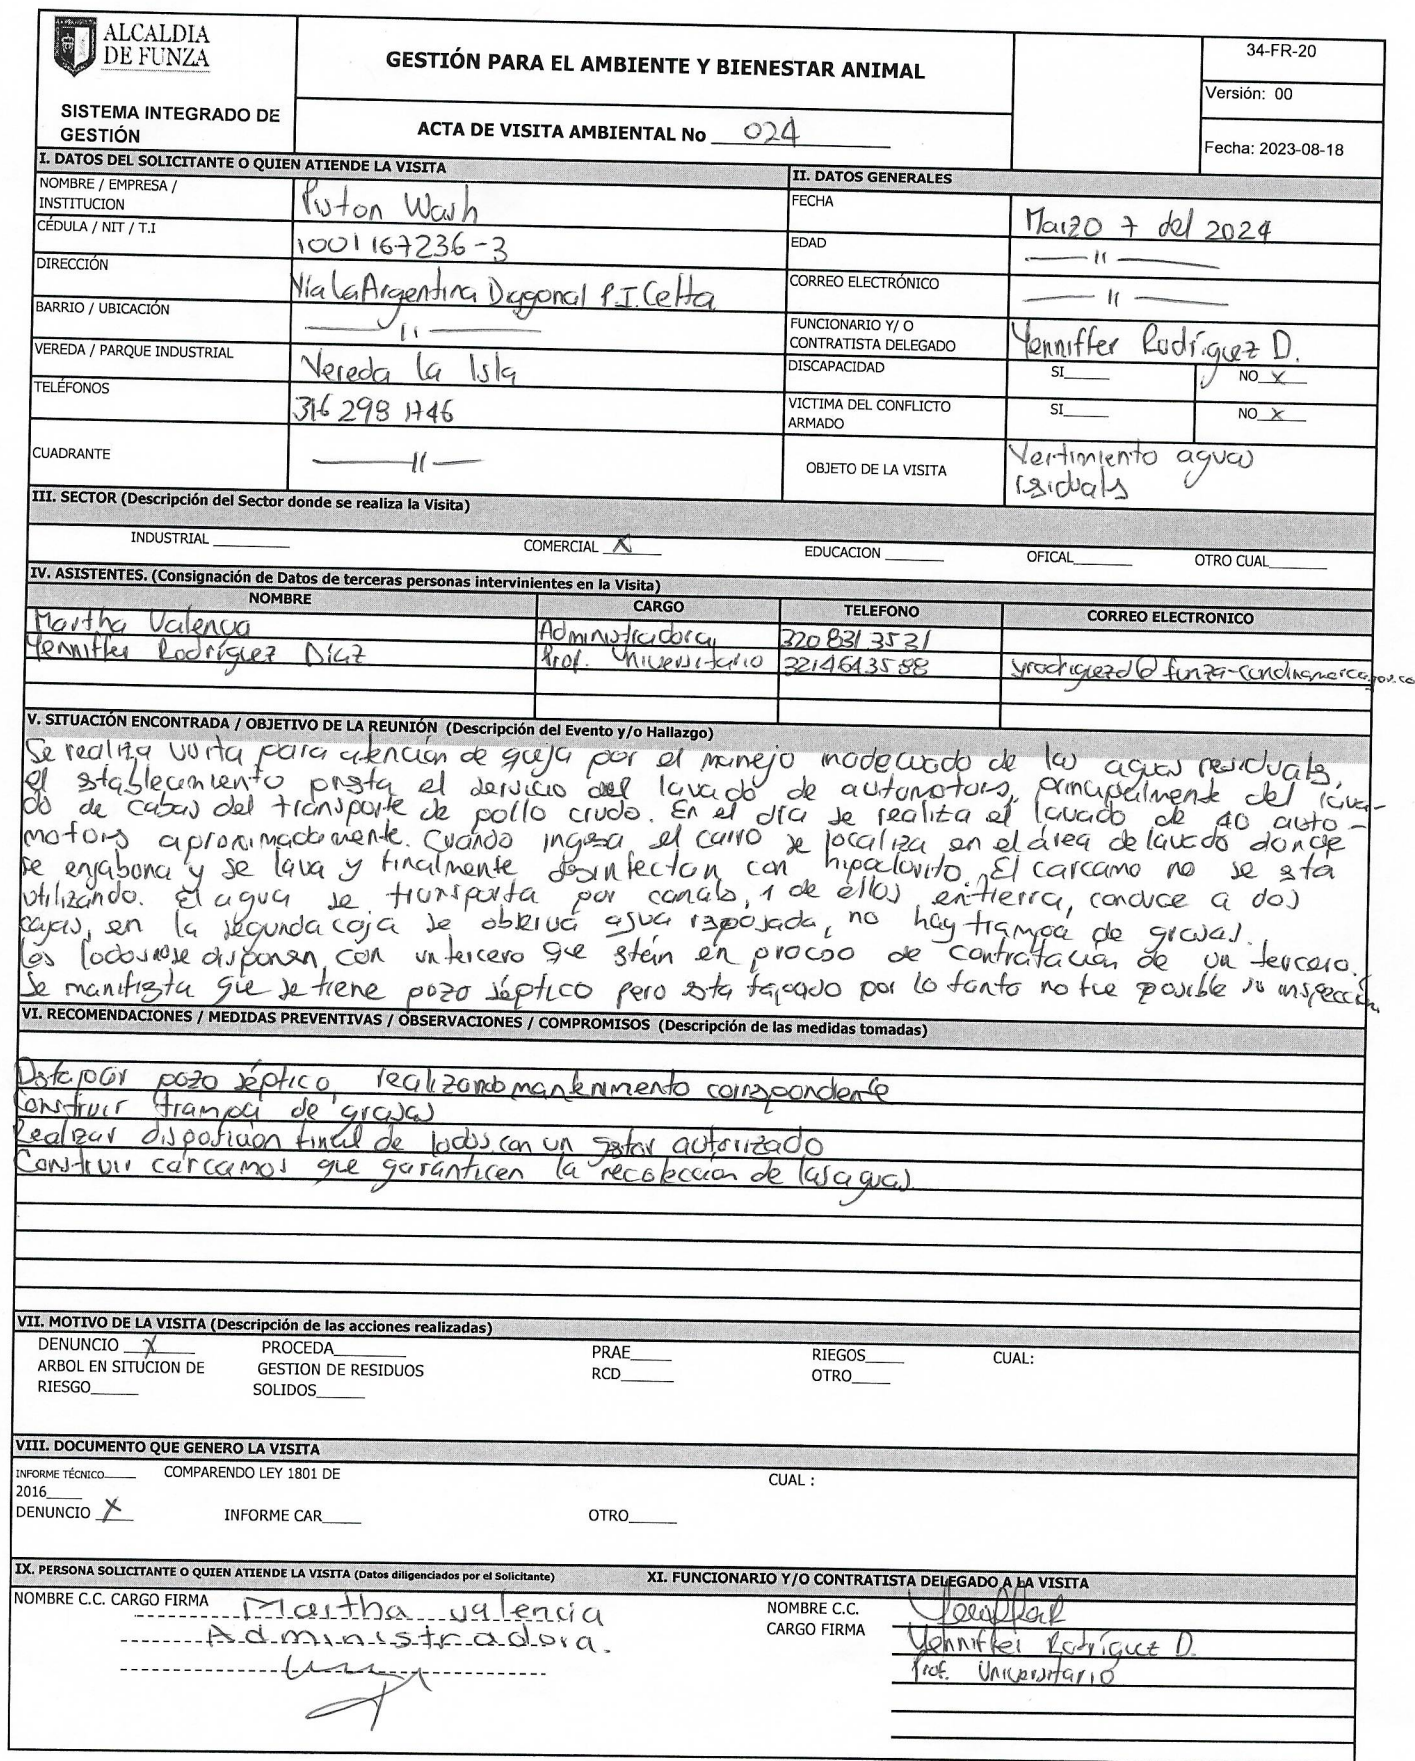 ALCALDIA
DE FUNZA
SISTEMA INTEGRADO DE
GESTIÓN
GESTIÓN PARA EL AMBIENTE Y BIENESTAR ANIMAL
ACTA DE VISITA AMBIENTAL No 024
34-FR-20
Versión: 00
Fecha: 2023-08-18
I. DATOS DEL SOLICITANTE O QUIEN ATIENDE LA VISITA
NOMBRE / EMPRESA /
INSTITUCION
Piston Wash
CÉDULA / NIT / T.I
1001167236-3
DIRECCIÓN
Via La Argentina Diagonal P.I. Celta
BARRIO / UBICACIÓN
— 11 —
VEREDA / PARQUE INDUSTRIAL
Vereda la Isla
TELÉFONOS
316 298 1746
CUADRANTE
— 11 —
II. DATOS GENERALES
FECHA
Marzo 7 del 2024
EDAD
— 11 —
CORREO ELECTRÓNICO
— 11 —
FUNCIONARIO Y/ O
CONTRATISTA DELEGADO
Yenniffer Rodríguez D.
DISCAPACIDAD SI____ NO X
VICTIMA DEL CONFLICTO
ARMADO
SI____ NO X
OBJETO DE LA VISITA
Vertimiento aguas
residuales
III. SECTOR (Descripción del Sector donde se realiza la Visita)
INDUSTRIAL ____ COMERCIAL X EDUCACION ____ OFICAL____ OTRO CUAL____
IV. ASISTENTES. (Consignación de Datos de terceras personas intervinientes en la Visita)
NOMBRE CARGO TELEFONO CORREO ELECTRONICO
Martha Valencia Administradora 320 831 3531
Yenniffer Rodríguez Díaz Prof. Universitario 3214643588 yrodriguezd@funza-cundinamarca.gov.co
V. SITUACIÓN ENCONTRADA / OBJETIVO DE LA REUNIÓN (Descripción del Evento y/o Hallazgo)
Se realiza visita para atención de queja por el manejo inadecuado de las aguas residuales,
el establecimiento presta el servicio del lavado de automotores, principalmente del lava-
do de cabas del transporte de pollo crudo. En el día se realiza el lavado de 40 auto-
motores aproximadamente. Cuándo ingresa el carro se localiza en el área de lavado donde
se enjabona y se lava y finalmente desinfectan con hipoclorito. El carcamo no se esta
utilizando. El agua se transporta por canales, 1 de ellos en tierra, conduce a dos
cajas, en la segunda caja se observa agua reposada, no hay trampa de grasas.
Los lodos no se disponen con un tercero que están en proceso de contratación de un tercero.
Se manifiesta que se tiene pozo séptico pero esta tapado por lo tanto no fue posible su inspección
VI. RECOMENDACIONES / MEDIDAS PREVENTIVAS / OBSERVACIONES / COMPROMISOS (Descripción de las medidas tomadas)
Destapar pozo séptico, realizando mantenimento correspondente
Construir trampa de grasas
Realizar disposicion final de lodos con un gestor autorizado
Construir cárcamos que garanticen la recolección de las aguas
VII. MOTIVO DE LA VISITA (Descripción de las acciones realizadas)
DENUNCIO X PROCEDA____ PRAE____ RIEGOS____ CUAL:
ARBOL EN SITUCION DE GESTION DE RESIDUOS RCD____ OTRO____
RIESGO____ SOLIDOS____
VIII. DOCUMENTO QUE GENERO LA VISITA
INFORME TÉCNICO____ COMPARENDO LEY 1801 DE CUAL :
2016____
DENUNCIO X INFORME CAR____ OTRO____
IX. PERSONA SOLICITANTE O QUIEN ATIENDE LA VISITA (Datos diligenciados por el Solicitante)
NOMBRE C.C. CARGO FIRMA Martha valencia
Administradora.
XI. FUNCIONARIO Y/O CONTRATISTA DELEGADO A LA VISITA
NOMBRE C.C.
CARGO FIRMA
Yenniffer Rodríguez D.
Prof. Universitario